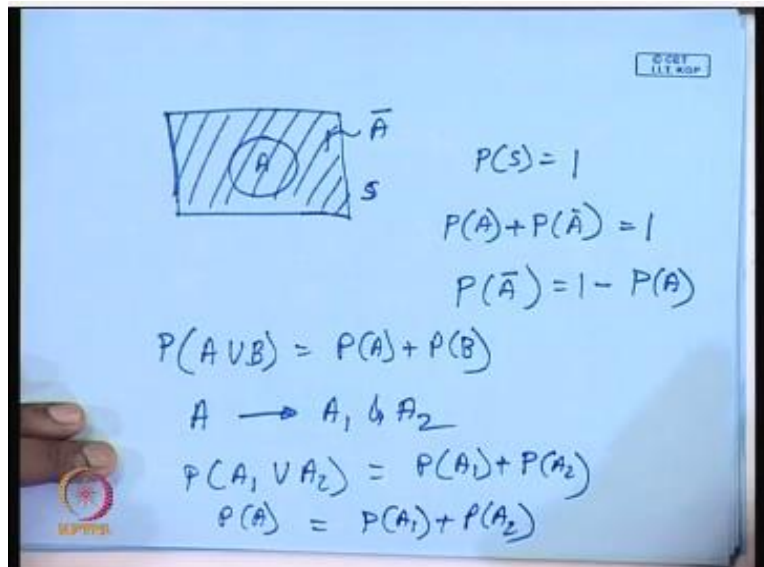 © CET
I.I.T. KGP
Ā
A
S
P(S) = 1
P(A) + P(Ā) = 1
P(Ā) = 1 - P(A)
P(A ∪ B) = P(A) + P(B)
A → A₁ & A₂
P(A₁ ∪ A₂) = P(A₁) + P(A₂)
P(A) = P(A₁) + P(A₂)
NPTEL